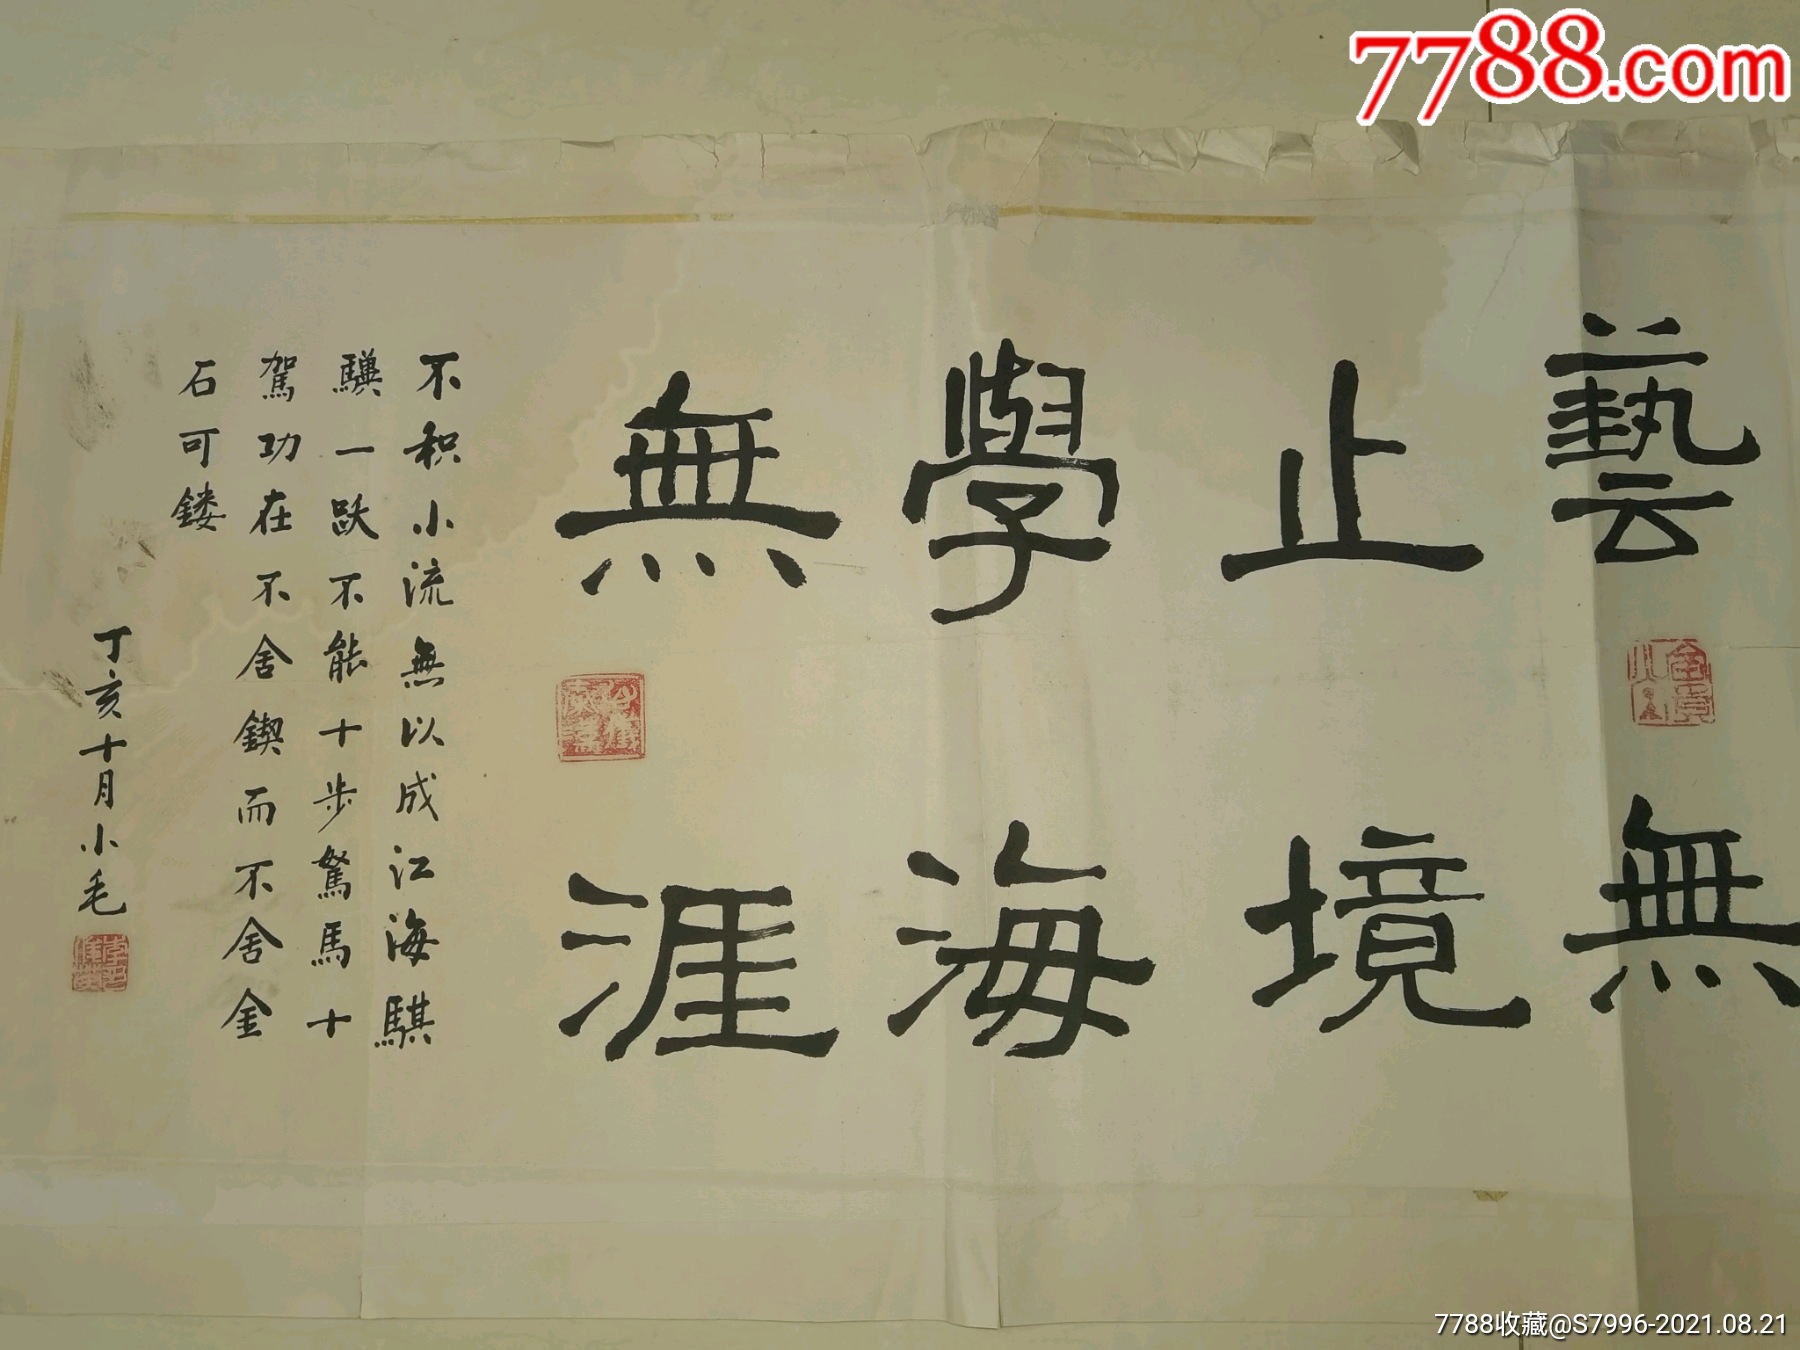 7788.com
藝無
止境
學海
無涯
不积小流無以成江海騏
驥一跃不能十步駑馬十
駕功在不舍鍥而不舍金
石可镂
丁亥十月小毛
7788收藏@S7996-2021.08.21